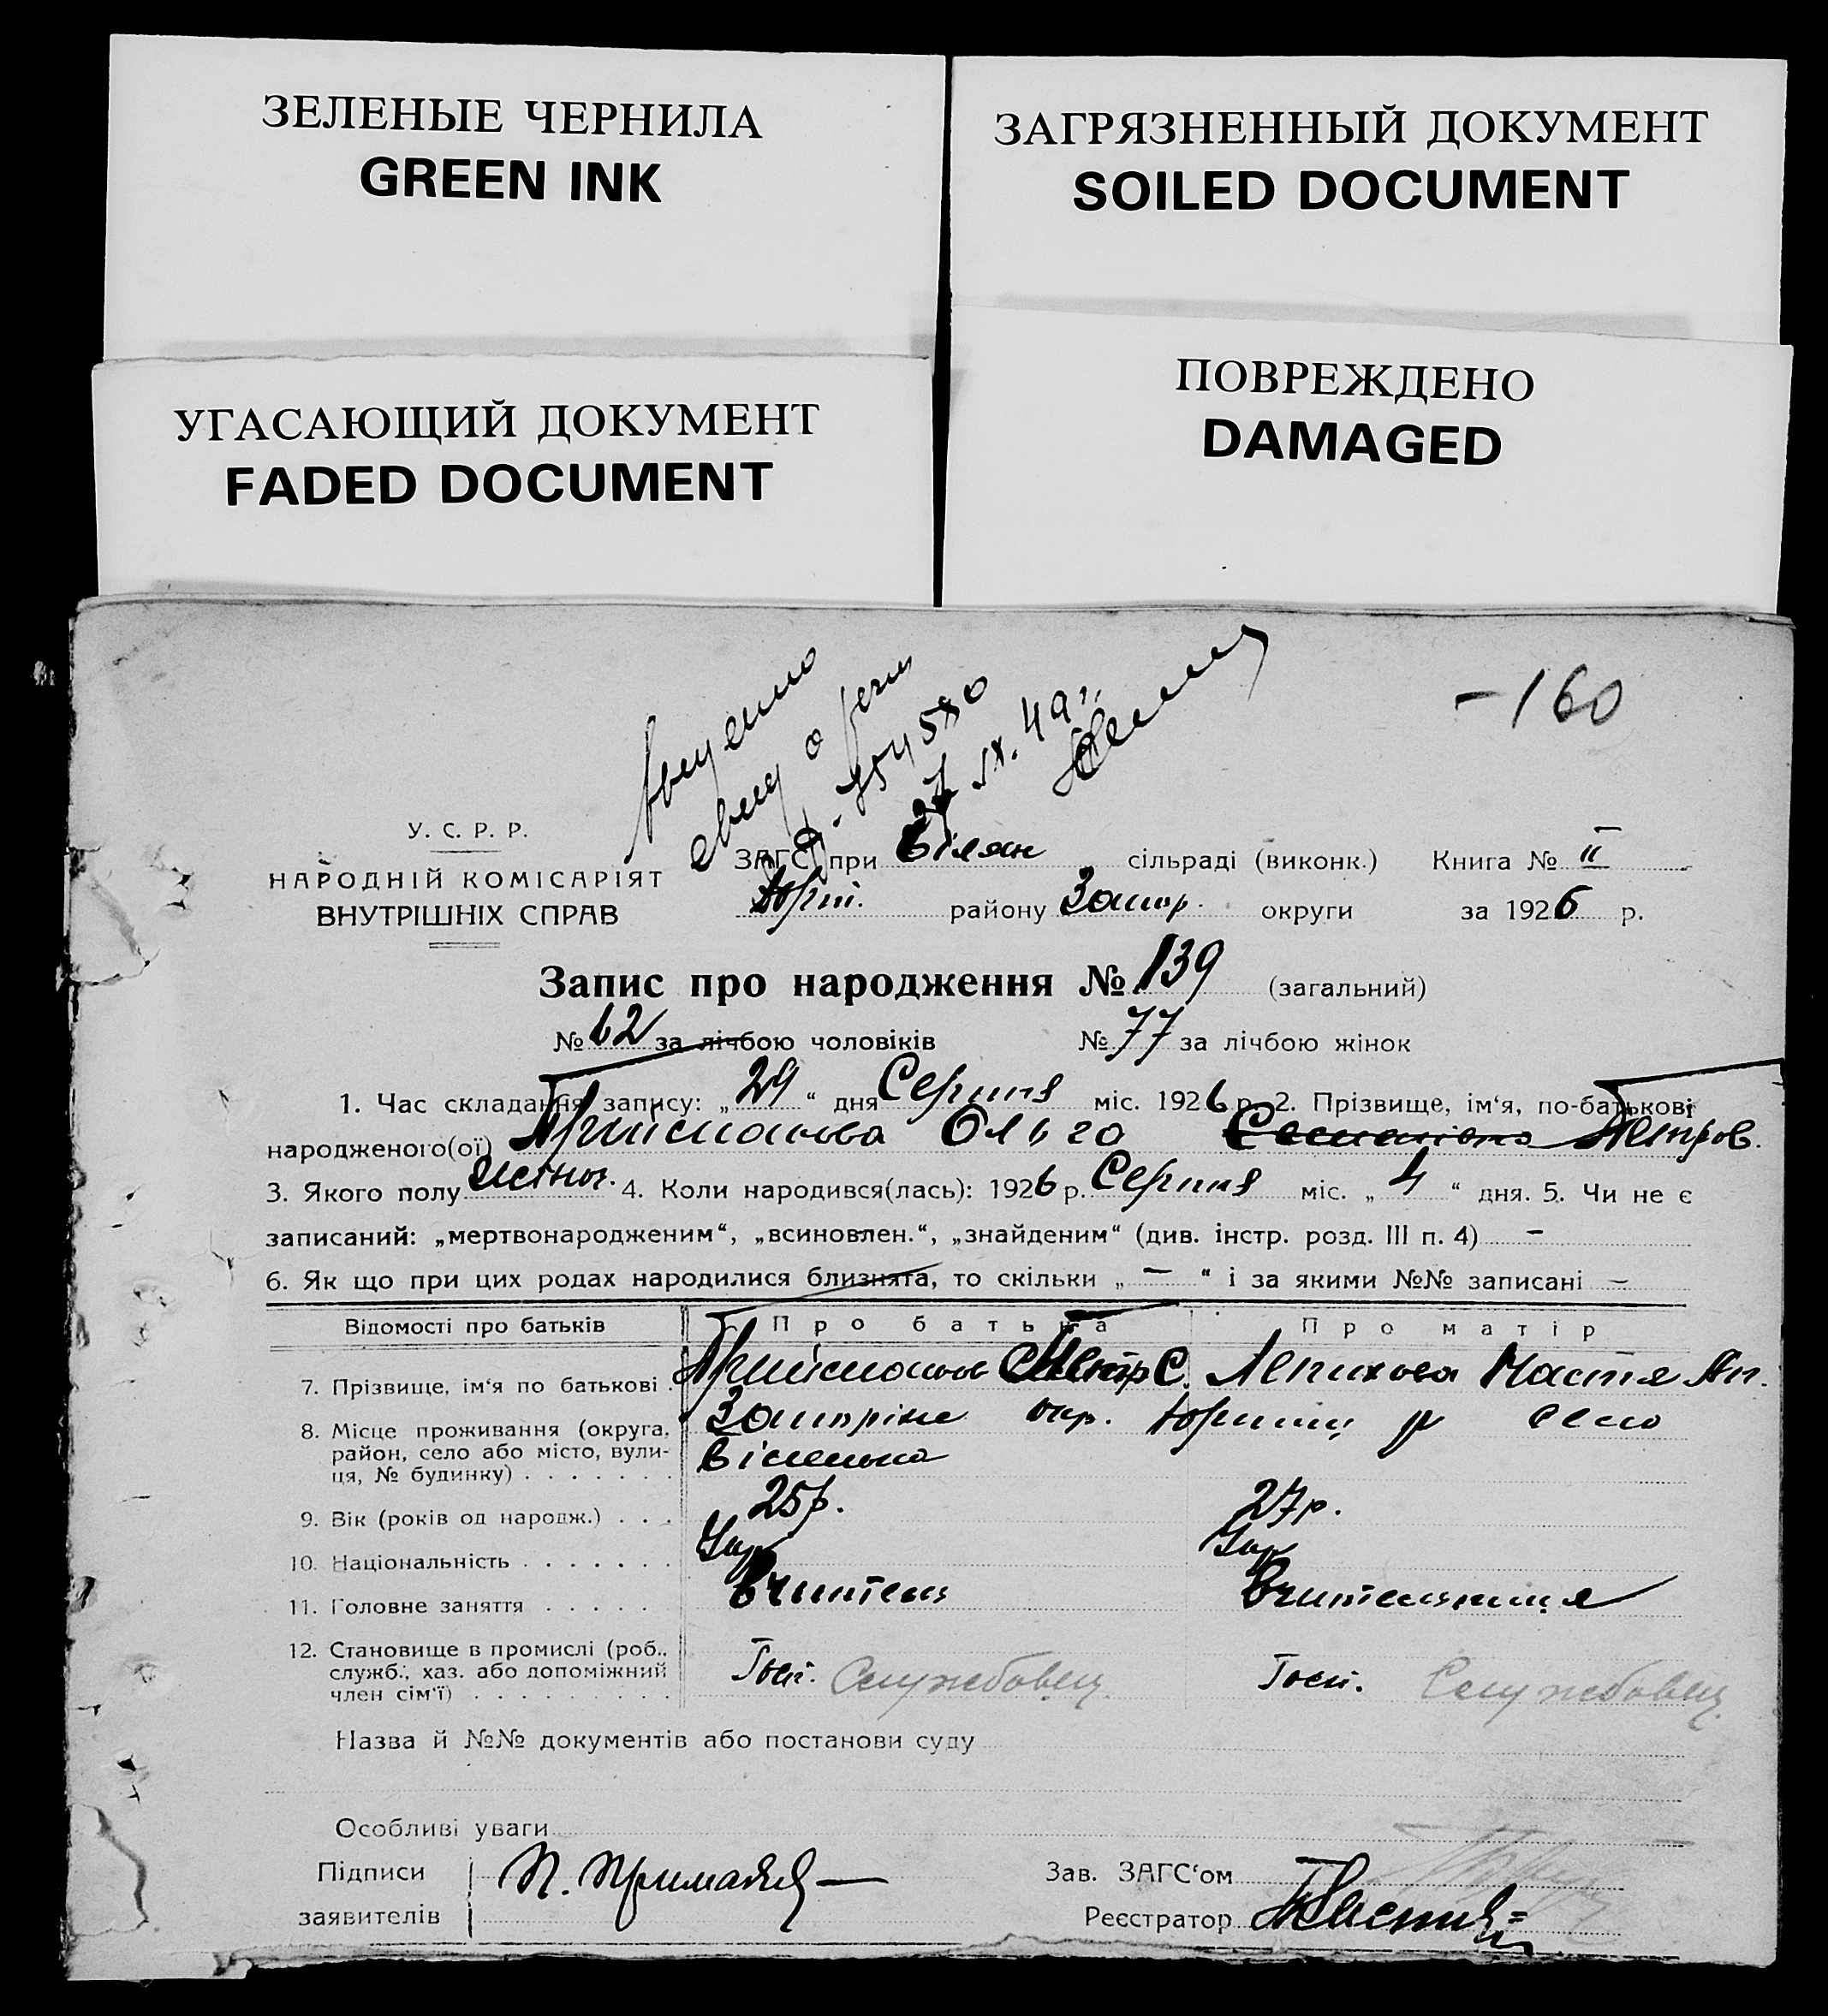 ЗЕЛЕНЫЕ ЧЕРНИЛА
GREEN INK
ЗАГРЯЗНЕННЫЙ ДОКУМЕНТ
SOILED DOCUMENT
УГАСАЮЩИЙ ДОКУМЕНТ
FADED DOCUMENT
ПОВРЕЖДЕНО
DAMAGED
-160
У. С. Р. Р.
НАРОДНІЙ КОМІСАРІЯТ
ВНУТРІШНІХ СПРАВ
ЗАГС при Білян сільраді (виконк.) Книга № II
району Запор. округи за 1926 р.
Запис про народження № 139 (загальний)
№ 62 за лічбою чоловіків № 77 за лічбою жінок
1. Час складання запису: „29“ дня Серпня міс. 1926 р. 2. Прізвище, ім‘я, по-батькові
народженого(ої) Ольга Петров.
3. Якого полу жіноч. 4. Коли народився(лась): 1926 р. Серпня міс. „4“ дня. 5. Чи не є
записаний: „мертвонародженим“, „всиновлен.“, „знайденим“ (див. інстр. розд. III п. 4) -
6. Як що при цих родах народилися близнята, то скільки „-“ і за якими №№ записані -
Відомості про батьків Про батька Про матір
7. Прізвище, ім‘я по батькові Петр С. Лепихова Настя Ан.
8. Місце проживання (округа, Запоріже окр. р село
район, село або місто, вули-
ця, № будинку)
9. Вік (років од народж.) 25р. 27р.
10. Національність Укр Укр
11. Головне заняття Вчитель Вчителниця
12. Становище в промислі (роб.,
служб., хаз. або допоміжний Госп. Службовец Госп. Службовец
член сім‘ї)
Назва й №№ документів або постанови суду
Особливі уваги
Підписи
заявителів
Зав. ЗАГС‘ом
Реєстратор